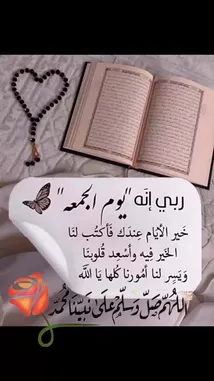 ربي إنَه "يوم الجمعه"
خَير الأيَام عِندَك فَاكتُب لنَا
الخَير فِيه وأسْعِد قُلوبنَا
وَيَسِر لنا أمُورنا كُلها يَا اللّه
اللَّهُمَّ صَلِّ وَسَلِّم عَلىٰ نَبِيِّنَا مُحَمَّد